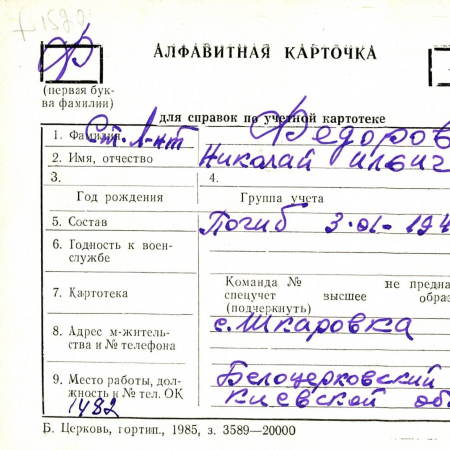 Ф
АЛФАВИТНАЯ КАРТОЧКА
(первая бук-
ва фамилии)
для справок по учетной картотеке
1. Фамилия Ст. л-нт Федоров
2. Имя, отчество Николай Ильич
3. 4.
Год рождения Группа учета
5. Состав Погиб 3.01-194
6. Годность к воен-
службе
Команда № не предна
7. Картотека спецучет высшее обра
(подчеркнуть)
8. Адрес м-житель-
ства и № телефона с. Шкаровка
9. Место работы, дол- Белоцерковский
жность и № тел. ОК Киевской об
1482
Б. Церковь, гортип., 1985, з. 3589—20000